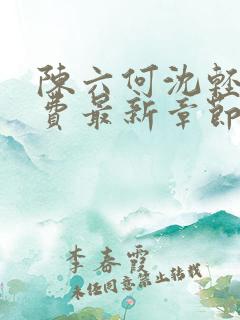 陳六何沈輕
費最新章節
李春霞
未经同意禁止转载